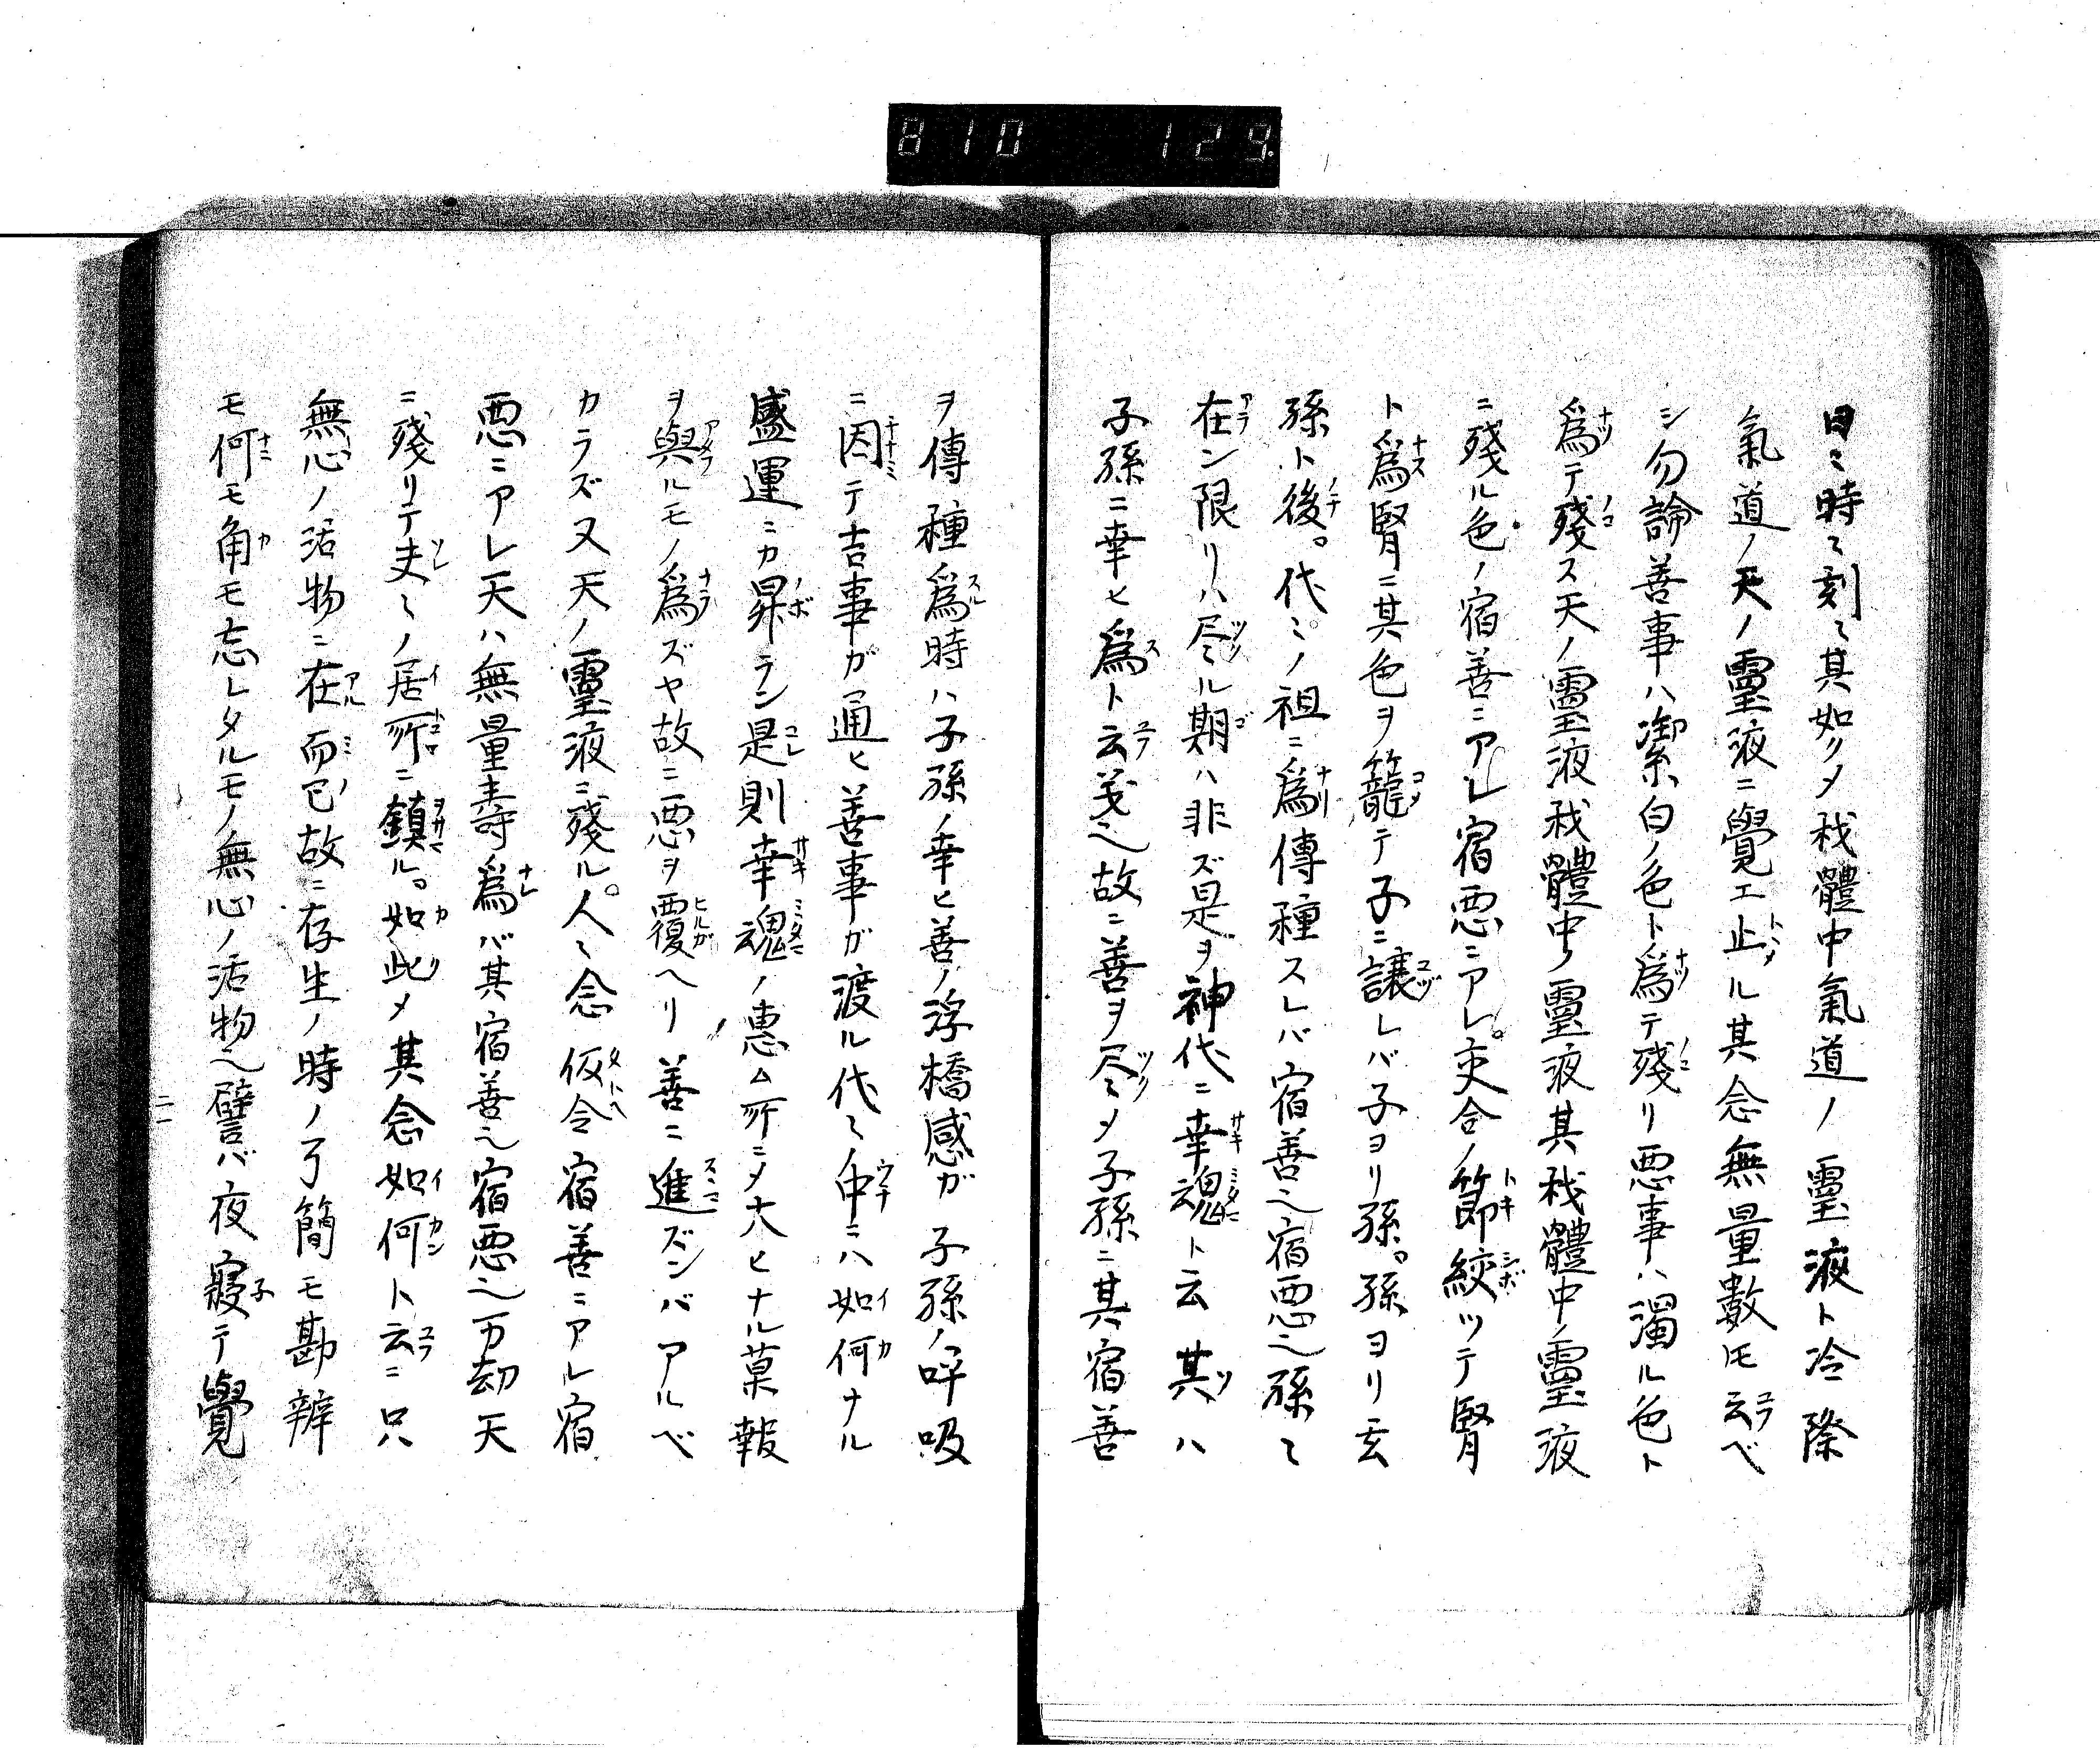 810 129.
日〻時〻刻〻其如クメ我體中氣道ノ靈液ト冷際
氣道ノ天ノ靈液ニ覺エ止ル其念無量數𪜈云ベ
シ勿論善事ハ潔白ノ色ト爲テ殘リ悪事ハ濁ル色ト
爲テ殘ス天ノ靈液我體中ノ靈液其我體中ノ靈液
ニ殘ル色ノ宿善ニアレ宿悪ニアレ。交合ノ節絞ツテ腎
ト爲腎ニ其色ヲ籠テ子ニ譲レバ子ヨリ孫。孫ヨリ玄
孫ト後。代〻ノ祖ニ爲傳種スレバ宿善〻宿悪〻孫〻
在ン限リハ尽ル期ハ非ズ是ヲ神代ニ幸魂ト云其ハ
子孫ニ幸ヒ爲ト云義〻故ニ善ヲ尽メ子孫ニ其宿善
ヲ傳種爲時ハ子孫ノ幸ヒ善ノ浮橋感ガ子孫ノ呼吸
ニ因テ吉事ガ通ヒ善事ガ渡ル代〻ノ中ニハ如何ナル
盛運ニカ昇ラン是則幸魂ノ惠ム所ニメ大ヒナル菓報
ヲ與ルモノ爲ズヤ故ニ悪ヲ覆ヘリ善ニ進ズンバアルベ
カラズ又天ノ靈液ニ殘ル。人〻念仮令宿善ニアル宿
悪ニアレ天ハ無量壽爲バ其宿善〻宿悪〻万劫天
ニ殘リテ夫〻ノ居所ニ鎮ル。如此メ其念如何ト云ニ只
無心ノ活物ニ在而已故ニ存生ノ時ノ了簡モ勘辨
モ何モ角モ忘レタルモノ無心ノ活物〻譬バ夜寢テ覺